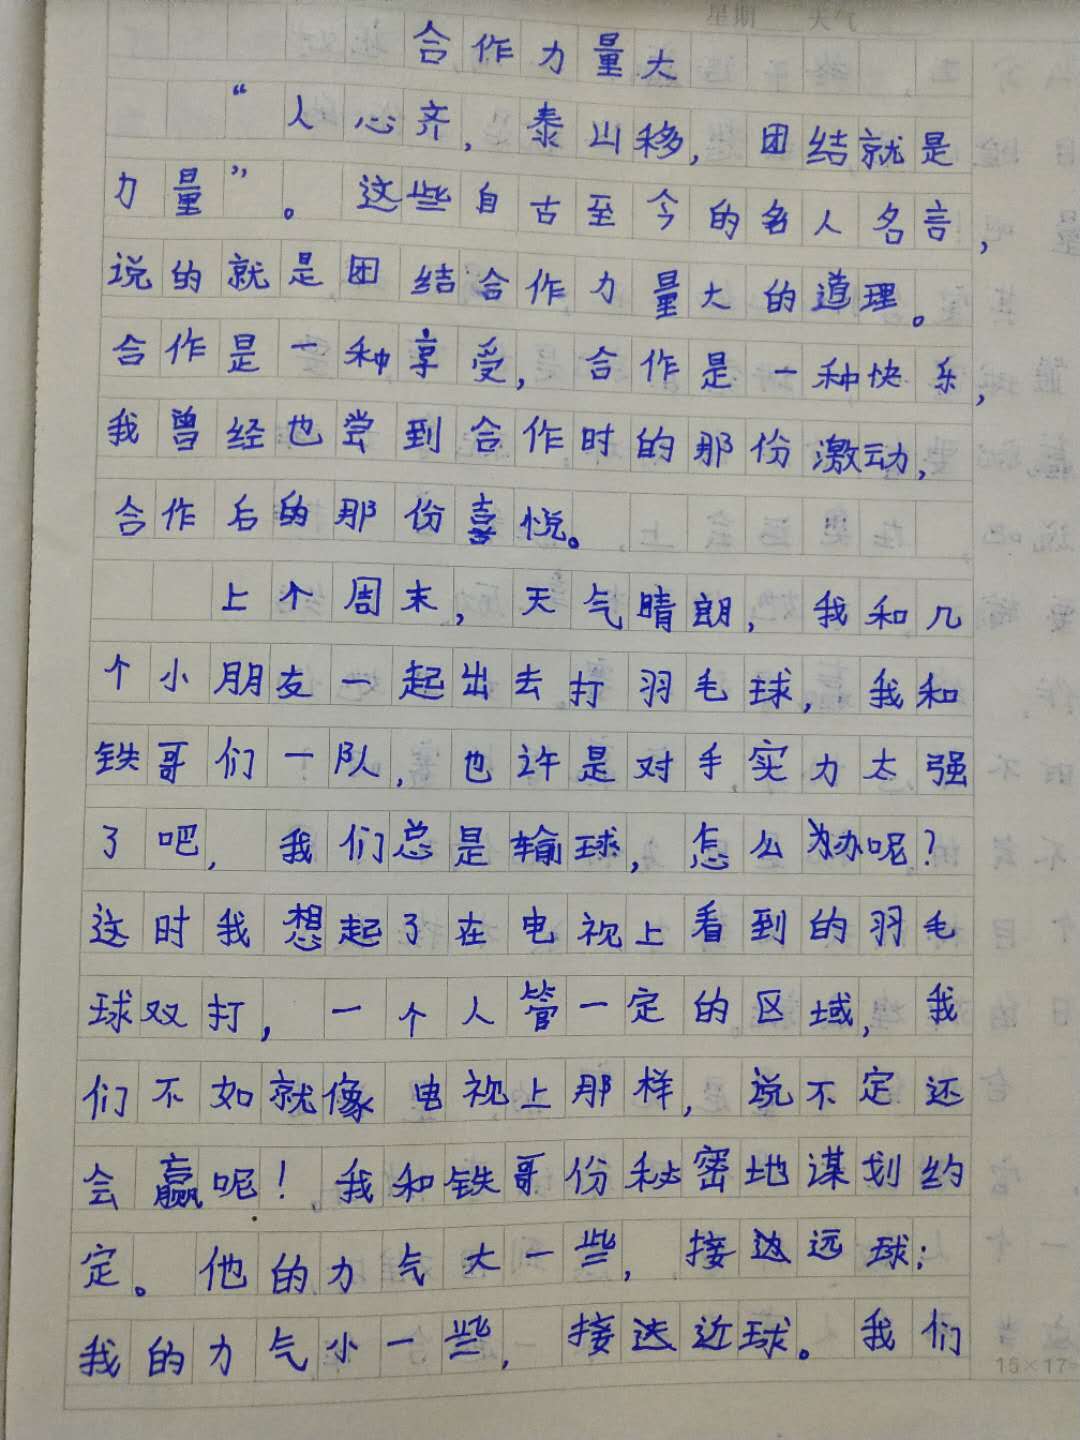 星期 天气
合作力量大
“人心齐，泰山移，团结就是
力量”。这些自古至今的名人名言，
说的就是团结合作力量大的道理。
合作是一种享受，合作是一种快乐，
我曾经也尝到合作时的那份激动，
合作后的那份喜悦。
上个周末，天气晴朗，我和几
个小朋友一起出去打羽毛球，我和
铁哥们一队，也许是对手实力太强
了吧，我们总是输球，怎么办呢？
这时我想起了在电视上看到的羽毛
球双打，一个人管一定的区域，我
们不如就像电视上那样，说不定还
会赢呢！我和铁哥份秘密地谋划约
定。他的力气大一些，接远球；
我的力气小一些，接近球。我们
15×17=